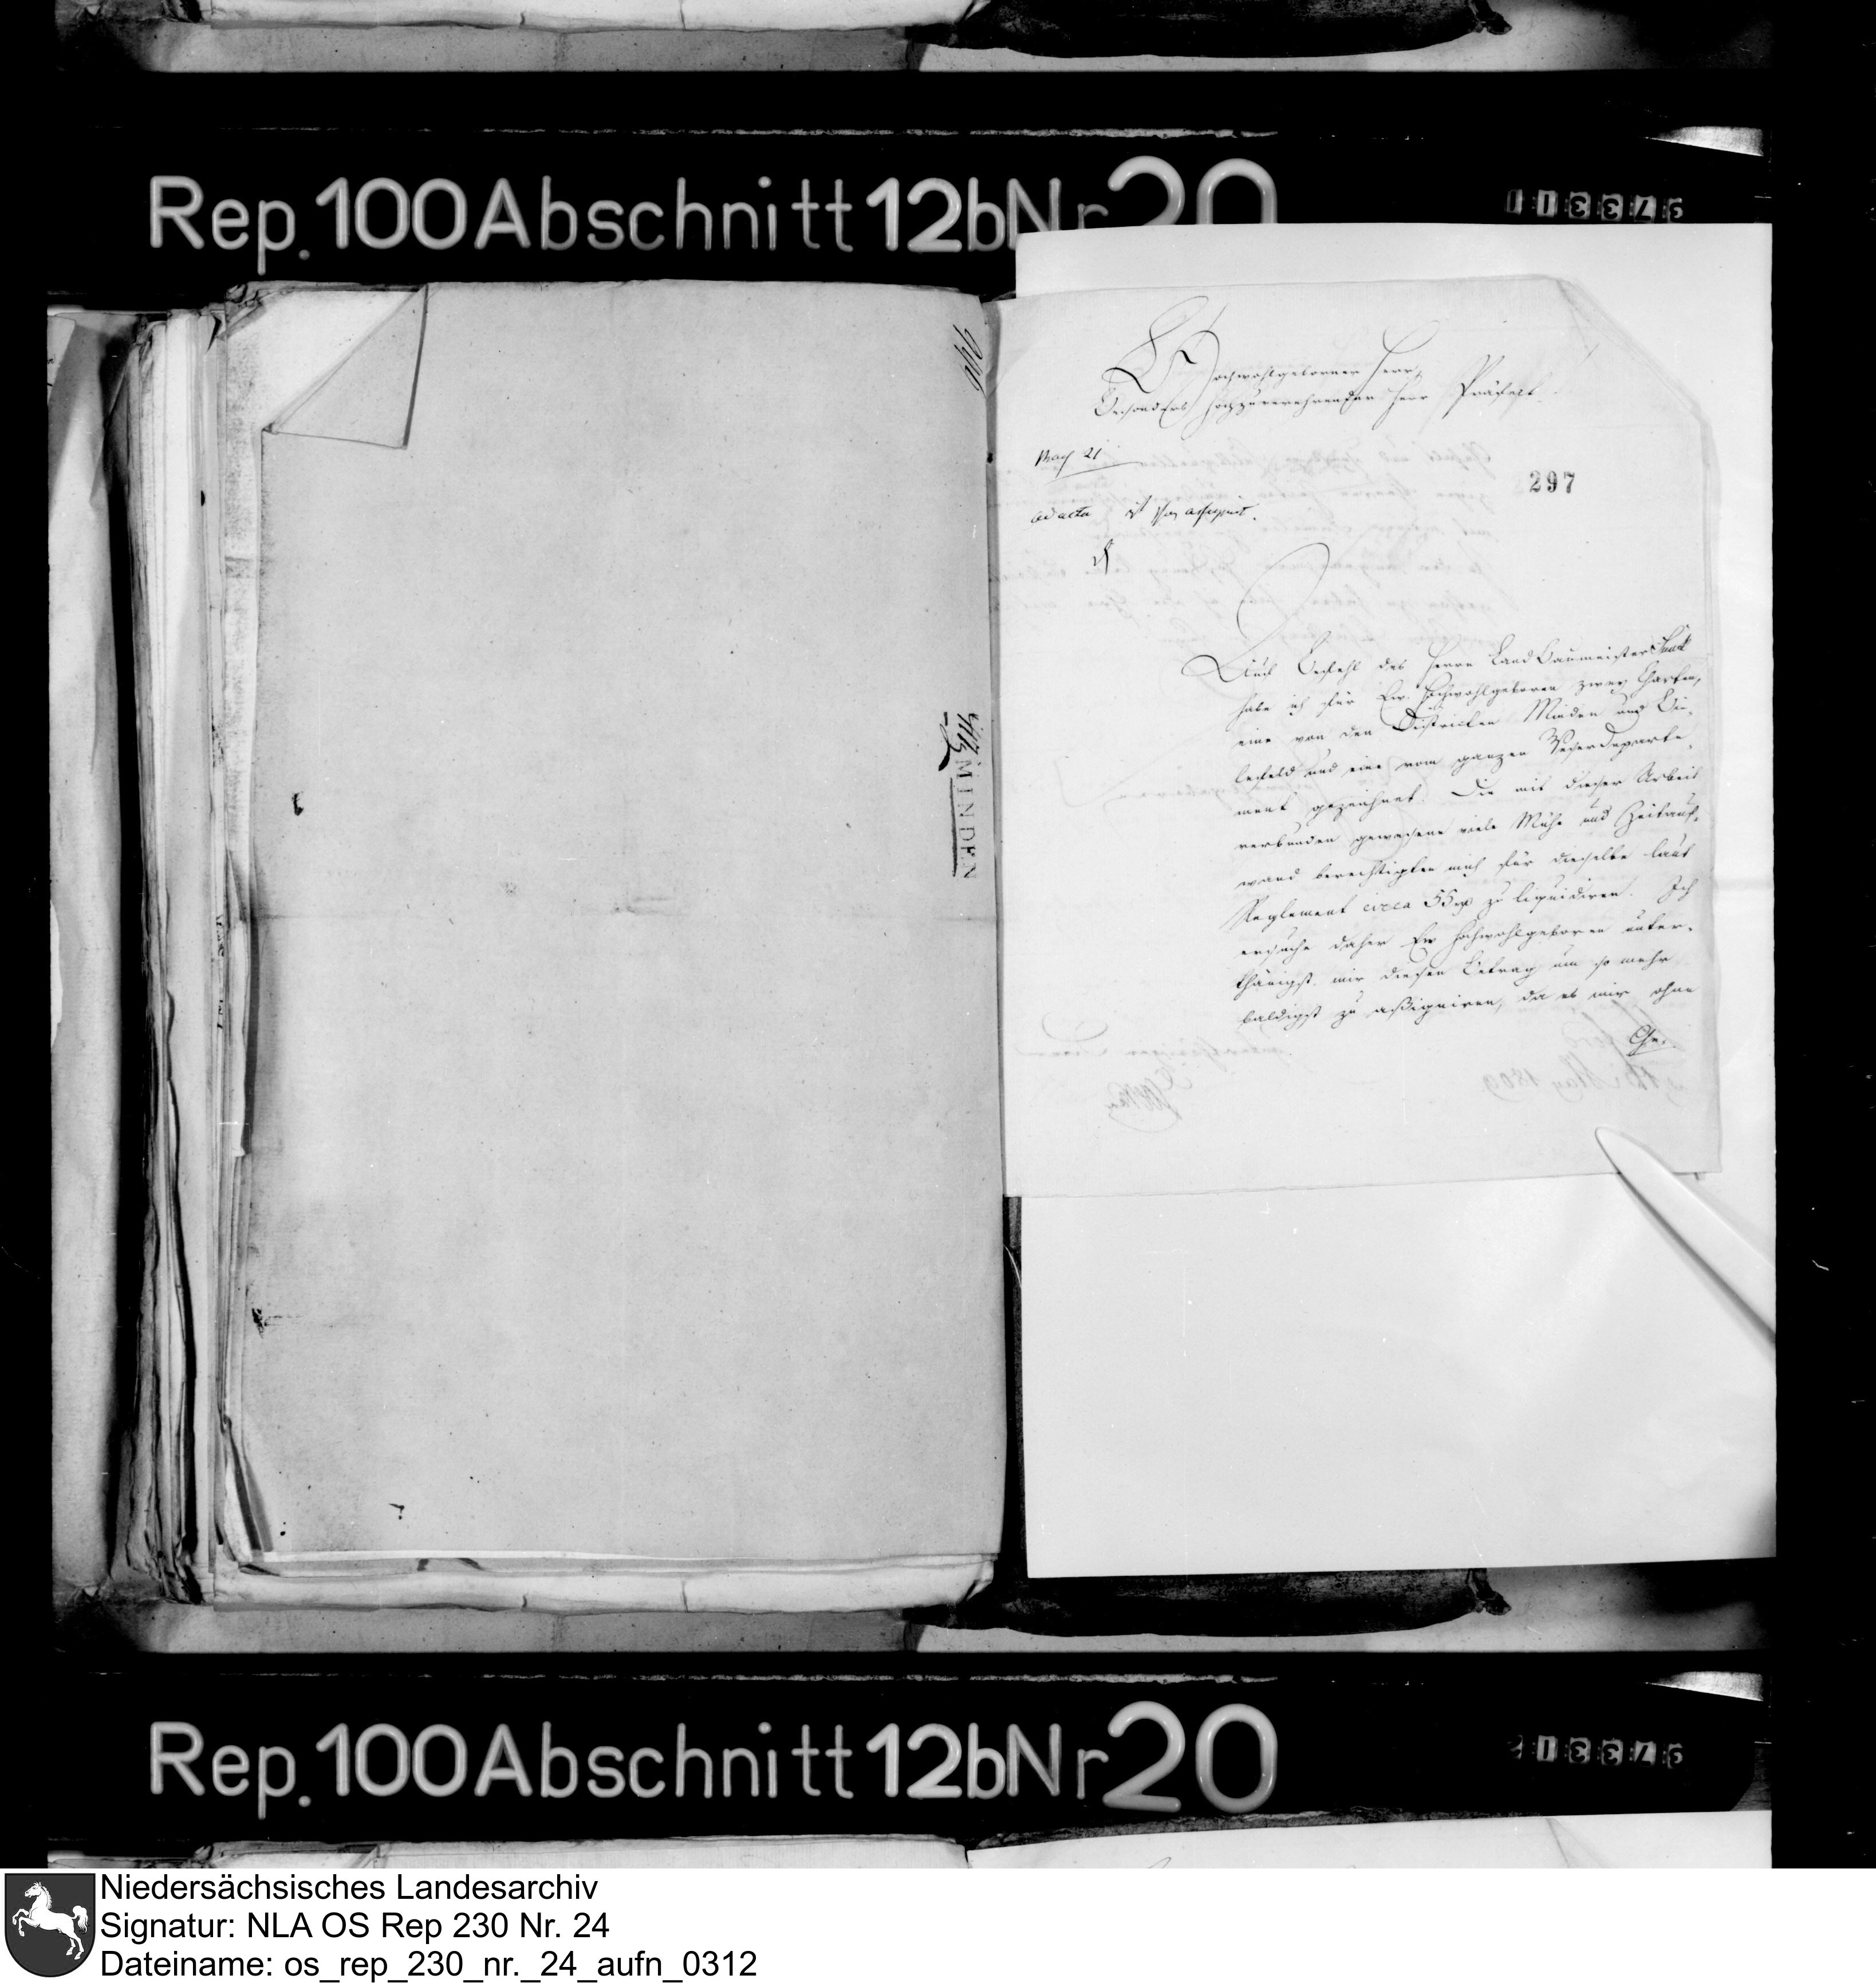 Rep. 100 Abschnitt 12b Nr 20
Hochwohlgeborner Herr,
Besonders hochzuverehrender Herr Präfect
May 21
297
ad acta ist schon assignirt.
Auf Befehl des Herrn Land Baumeister
habe ich für Ew. Hochwohlgeboren zwey Charten,
eine von den Districten Minden und Bie-
lefeld und eine vom ganzen Weserdeparte-
ment gezeichnet. Die mit dieser Arbeit
verbunden gewesene viele Mühe und Zeitauf-
wand berechtigten mich für dieselbe laut
Reglement circa 55 rt zu liquidiren. Ich
ersuche daher Ew Hochwohlgeboren unter-
thänigst mir diesen Betrag um so mehr
baldigst zu assigniren, da es mir ohne
MINDEN
Rep. 100 Abschnitt 12b Nr 20
Niedersächsisches Landesarchiv
Signatur: NLA OS Rep 230 Nr. 24
Dateiname: os_rep_230_nr._24_aufn_0312